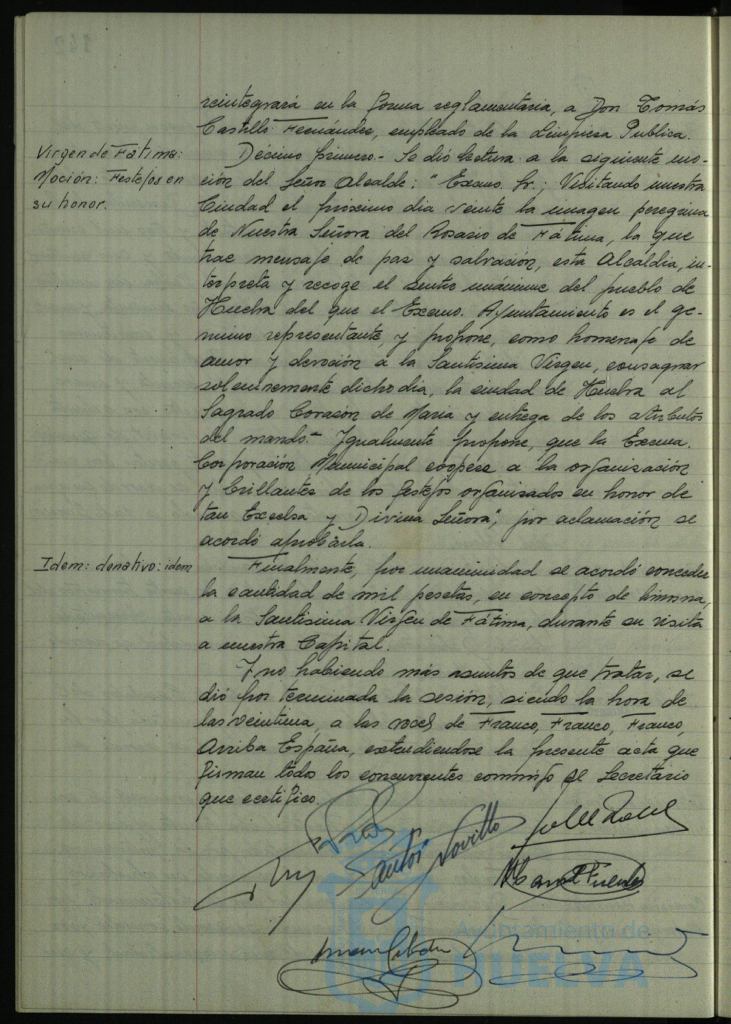 reintegrará en la forma reglamentaria, a Don Tomás
Castilla Fernández, empleado de la Limpieza Publica.
Virgen de Fátima:
Moción: Festejos en
su honor.
Décimo primero.- Se dió lectura a la siguiente mo-
ción del Señor Alcalde: "Excmo. Sr.; Visitando nuestra
Ciudad el próximo dia veinte la imagen peregrina
de Nuestra Señora del Rosario de Fátima, la que
trae mensaje de paz y salvación, esta Alcaldía, in-
terpreta y recoge el sentir unánime del pueblo de
Huelva del que el Excmo. Ayuntamiento es el ge-
nuino representante, y propone, como homenaje de
amor y devoción a la Santísima Virgen, consagrar
solemnemente dicho dia, la ciudad de Huelva al
Sagrado Corazón de Maria y entrega de los atributos
del mando.- Igualmente propone, que la Excma.
Corporación Municipal coopere a la organización
y brillantez de los festejos organizados en honor de
tan Excelsa y Divina Señora"; por aclamación se
acordó aprobarla.
Idem: donativo: idem
Finalmente, por unanimidad se acordó conceder
la cantidad de mil pesetas, en concepto de limosna,
a la Santísima Virgen de Fátima, durante su visita
a nuestra Capital.
Y no habiendo más asuntos de que tratar, se
dió por terminada la sesión, siendo la hora de
las veintiuna, a las voces de Franco, Franco, Franco,
Arriba España, extendiendose la presente acta que
firman todos los concurrentes conmigo el Secretario
que certifico.
Santos Novillo
Ayuntamiento de
HUELVA